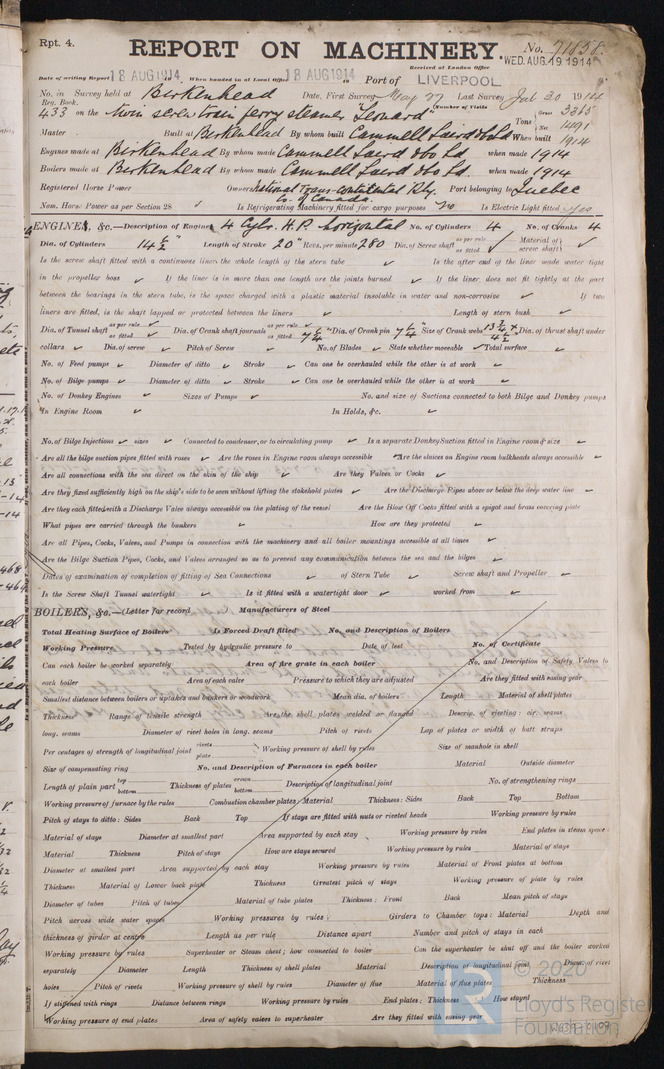 Rpt. 4.
REPORT ON MACHINERY.
No. 71858
WED. AUG. 19 1914
Received at London Office
Date of writing Report 18 AUG 1914 When handed in at Local Office 18 AUG 1914 Port of LIVERPOOL
No. in Survey held at Birkenhead Date, First Survey May 27 Last Survey Jul 30 1914
Reg. Book.
(Number of Visits
433 on the twin screw train ferry steamer "Leonard"
Tons Gross 3315
Net 1491
Master Built at Birkenhead By whom built Cammell Laird & Co Ld When built 1914
Engines made at Birkenhead By whom made Cammell Laird & Co Ld when made 1914
Boilers made at Birkenhead By whom made Cammell Laird & Co Ld. when made 1914
Registered Horse Power Owners National Trans-continental Rly. Co. of Canada. Port belonging to Quebec
Nom. Horse Power as per Section 28 ✓ Is Refrigerating Machinery fitted for cargo purposes no Is Electric Light fitted yes
ENGINES, &c.—Description of Engines 4 Cylrs. H.P. horizontal No. of Cylinders 4 No. of Cranks 4
Dia. of Cylinders 14 1/2" Length of Stroke 20" Revs. per minute 280 Dia. of Screw shaft as per rule as fitted ✓ Material of screw shaft ✓
Is the screw shaft fitted with a continuous liner the whole length of the stern tube ✓ Is the after end of the liner made water tight
in the propeller boss ✓ If the liner is in more than one length are the joints burned ✓ If the liner does not fit tightly at the part
between the bearings in the stern tube, is the space charged with a plastic material insoluble in water and non-corrosive ✓ If two
liners are fitted, is the shaft lapped or protected between the liners ✓ Length of stern bush ✓
Dia. of Tunnel shaft as per rule ✓ as fitted ✓ Dia. of Crank shaft journals as per rule ✓ as fitted 7 1/4" Dia. of Crank pin 7 1/4" Size of Crank webs 13 1/2 x 4 1/2 Dia. of thrust shaft under
collars ✓ Dia. of screw ✓ Pitch of Screw ✓ No. of Blades ✓ State whether moveable ✓ Total surface ✓
No. of Feed pumps ✓ Diameter of ditto ✓ Stroke ✓ Can one be overhauled while the other is at work ✓
No. of Bilge pumps ✓ Diameter of ditto ✓ Stroke ✓ Can one be overhauled while the other is at work ✓
No. of Donkey Engines ✓ Sizes of Pumps ✓ No. and size of Suctions connected to both Bilge and Donkey pumps
In Engine Room ✓ In Holds, &c. ✓
No. of Bilge Injections ✓ sizes ✓ Connected to condenser, or to circulating pump ✓ Is a separate Donkey Suction fitted in Engine room & size ✓
Are all the bilge suction pipes fitted with roses ✓ Are the roses in Engine room always accessible ✓ Are the sluices on Engine room bulkheads always accessible ✓
Are all connections with the sea direct on the skin of the ship ✓ Are they Valves or Cocks ✓
Are they fixed sufficiently high on the ship's side to be seen without lifting the stokehold plates ✓ Are the Discharge Pipes above or below the deep water line ✓
Are they each fitted with a Discharge Valve always accessible on the plating of the vessel ✓ Are the Blow Off Cocks fitted with a spigot and brass covering plate
What pipes are carried through the bunkers ✓ How are they protected ✓
Are all Pipes, Cocks, Valves, and Pumps in connection with the machinery and all boiler mountings accessible at all times ✓
Are the Bilge Suction Pipes, Cocks, and Valves arranged so as to prevent any communication between the sea and the bilges ✓
Dates of examination of completion of fitting of Sea Connections ✓ of Stern Tube ✓ Screw shaft and Propeller ✓
Is the Screw Shaft Tunnel watertight ✓ Is it fitted with a watertight door ✓ worked from ✓
BOILERS, &c.—(Letter for record ) Manufacturers of Steel
Total Heating Surface of Boilers Is Forced Draft fitted No. and Description of Boilers
Working Pressure Tested by hydraulic pressure to Date of test No. of Certificate
Can each boiler be worked separately Area of fire grate in each boiler No. and Description of Safety Valves to
each boiler Area of each valve Pressure to which they are adjusted Are they fitted with easing gear
Smallest distance between boilers or uptakes and bunkers or woodwork Mean dia. of boilers Length Material of shell plates
Thickness Range of tensile strength Are the shell plates welded or flanged Descrip. of riveting: cir. seams
long. seams Diameter of rivet holes in long. seams Pitch of rivets Lap of plates or width of butt straps
Per centages of strength of longitudinal joint rivets plate Working pressure of shell by rules Size of manhole in shell
Size of compensating ring No. and Description of Furnaces in each boiler Material Outside diameter
Length of plain part top bottom Thickness of plates crown bottom Description of longitudinal joint No. of strengthening rings
Working pressure of furnace by the rules Combustion chamber plates: Material Thickness: Sides Back Top Bottom
Pitch of stays to ditto: Sides Back Top If stays are fitted with nuts or riveted heads Working pressure by rules
Material of stays Diameter at smallest part Area supported by each stay Working pressure by rules End plates in steam space
Material Thickness Pitch of stays How are stays secured Working pressure by rules Material of stays
Diameter at smallest part Area supported by each stay Working pressure by rules Material of Front plates at bottom
Thickness Material of Lower back plate Thickness Greatest pitch of stays Working pressure of plate by rules
Diameter of tubes Pitch of tubes Material of tube plates Thickness: Front Back Mean pitch of stays
Pitch across wide water spaces Working pressures by rules Girders to Chamber tops: Material Depth and
thickness of girder at centre Length as per rule Distance apart Number and pitch of stays in each
Working pressure by rules Superheater or Steam chest; how connected to boiler Can the superheater be shut off and the boiler worked
separately Diameter Length Thickness of shell plates Material Description of longitudinal joint Diam. of rivet
holes Pitch of rivets Working pressure of shell by rules Diameter of flue Material of flue plates Thickness
If stiffened with rings Distance between rings Working pressure by rules End plates: Thickness How stayed
Working pressure of end plates Area of safety valves to superheater Are they fitted with easing gear
© 2020
Lloyd's Register
Foundation